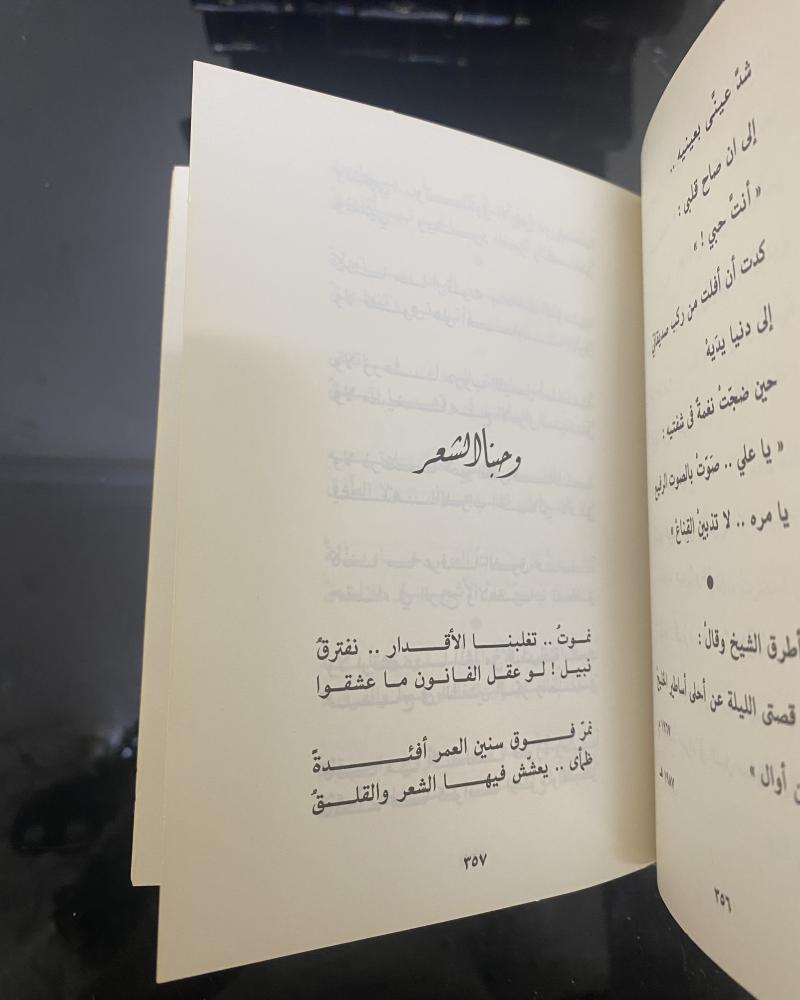 شدَّ عينَّى بعينيه ..
إلى ان صاح قلبي :
« أنتَّ حبي ! »
كدت أن أفلت من ركب صديقاتي
إلى دنيا يدَيهْ
حين ضجّتْ نغمةٌ فى شفتيه :
« يا علي .. صَوّتْ بالصوت الرفيع
يا مره .. لا تذبينْ القِناعْ »
●
أطرق الشيخ وقالْ :
قصتى الليلة عن أحلى أساطير الخليج
أوال »
٣٥٦
وحبنا الشعر
نموتُ .. تغلبنـا الأقـدار .. نفترقُ
نبيل ! لو عقل الفانون ما عشقوا
نمرّ فـوق سنين العمر أفئـدةً
ظمأى .. يعشّش فيهـا الشعر والقلـقُ
٣٥٧